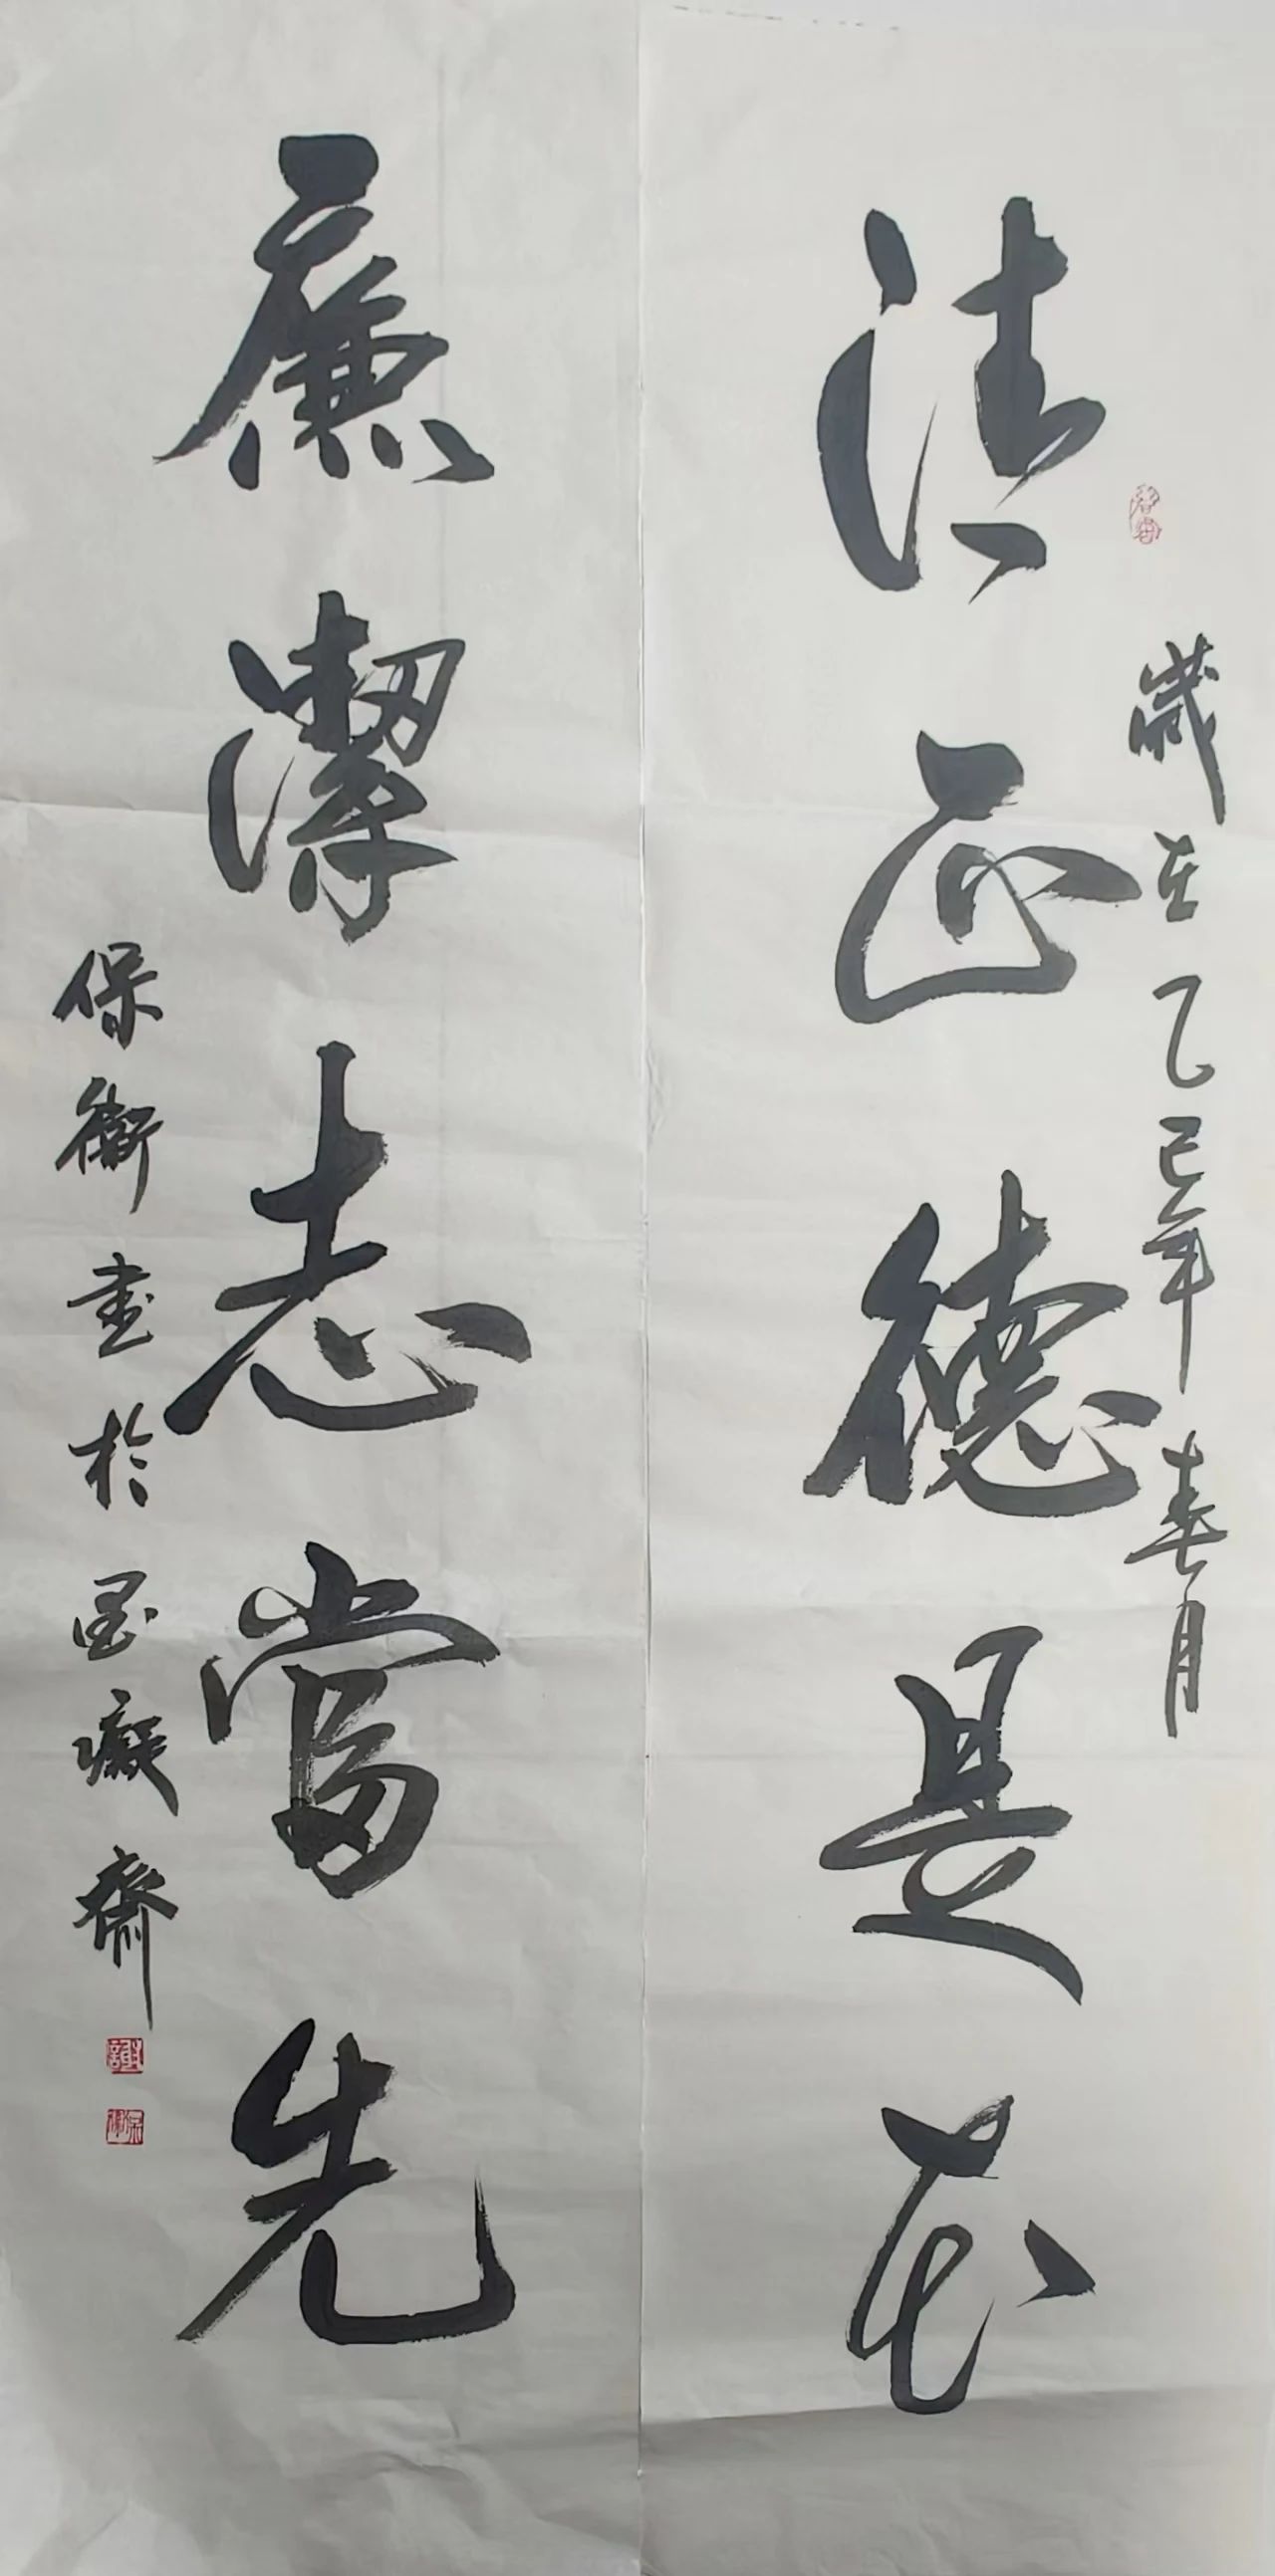 歲在乙巳年春月
清正德是本
廉潔志當先
保衛書於墨癡齋